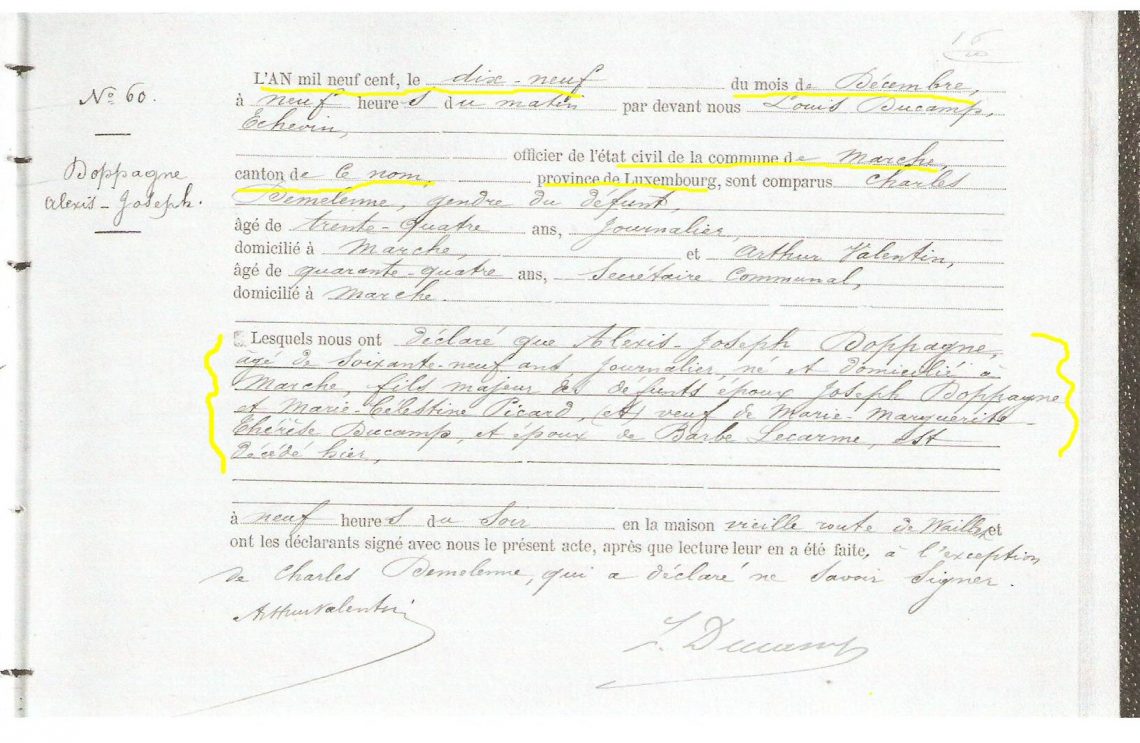 No 60.
Doppagne
Alexis-Joseph.
L'AN mil neuf cent, le dix-neuf du mois de Décembre,
à neuf heures du matin par devant nous Louis Ducamp,
Echevin,
officier de l'état civil de la commune de Marche,
canton de ce nom, province de Luxembourg, sont comparus Charles
Demelenne, gendre du défunt,
âgé de trente-quatre ans, Journalier,
domicilié à Marche, et Arthur Valentin,
âgé de quarante-quatre ans, Secrétaire Communal,
domicilié à Marche.
Lesquels nous ont déclaré que Alexis-Joseph Doppagne,
agé de soixante-neuf ans, Journalier, né et domicilié à
Marche, fils majeur des défunts époux Joseph Doppagne
et Marie-Célestine Picard, et veuf de Marie-Marguerite-
Thérèse Ducamp, et époux de Barbe Lecarme, est
décédé hier,
à neuf heures du soir en la maison vieille route de Waillet, et
ont les déclarants signé avec nous le présent acte, après que lecture leur en a été faite, à l'exception
de Charles Demelenne, qui a déclaré ne savoir signer.
Arthur Valentin
L. Ducamp